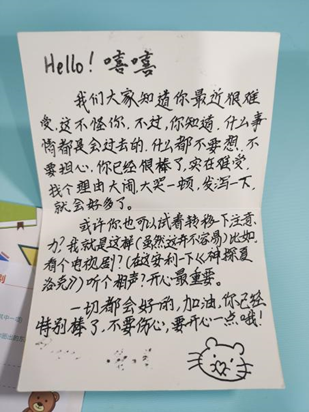 Hello! 嘻嘻
我们大家知道你最近很难
受,这不怪你,不过,你知道,什么事
情都是会过去的,什么都不要想,不
要担心,你已经很棒了,实在难受,
找个理由大闹,大哭一顿,发泄一下,
就会好多了。
或许你也可以试着转移一下注意
力?我就是这样(虽然这并不容易)比如,
看个电视剧?(在这安利一下《神探夏
洛克》)听个相声?开心最重要。
一切都会好的,加油,你已经
特别棒了,不要伤心,要开心一点哦!